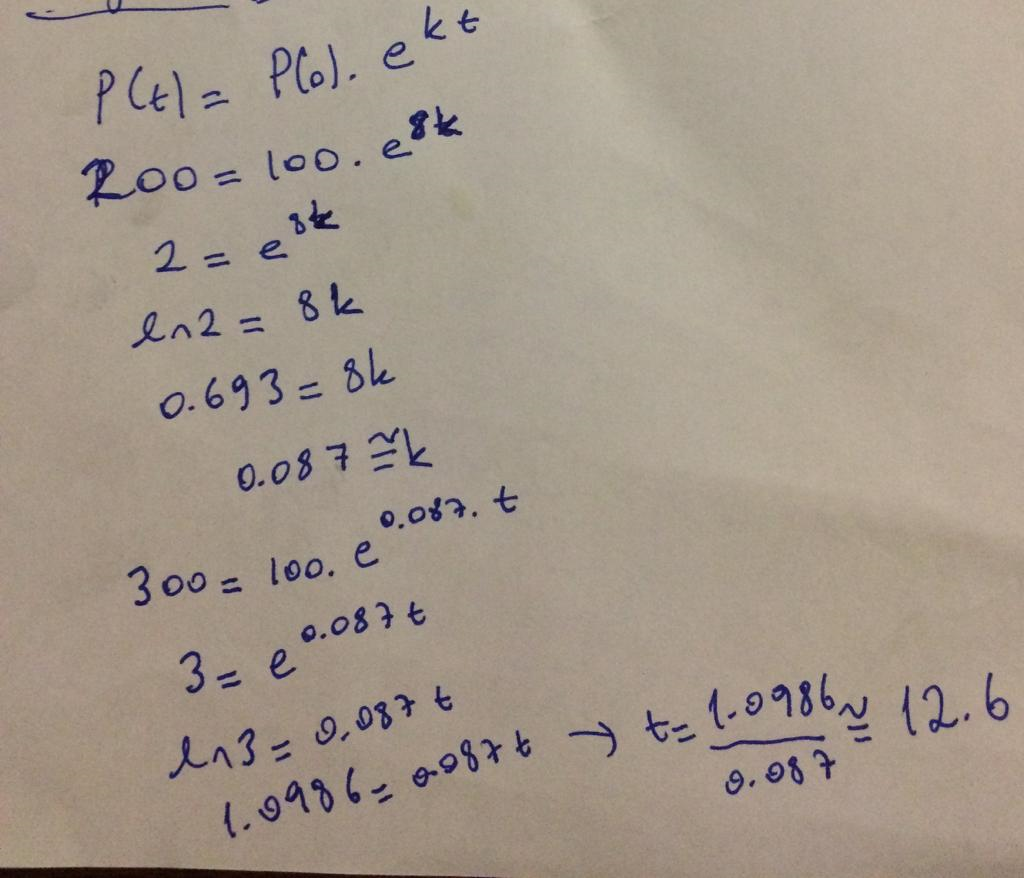 P(t) = P(0). e^kt
200 = 100. e^8k
2 = e^8k
ln2 = 8k
0.693 = 8k
0.087 ≅ k
300 = 100. e^0.087. t
3 = e^0.087 t
ln3 = 0.087 t
1.0986 = 0.087 t → t = 1.0986/0.087 ≅ 12.6